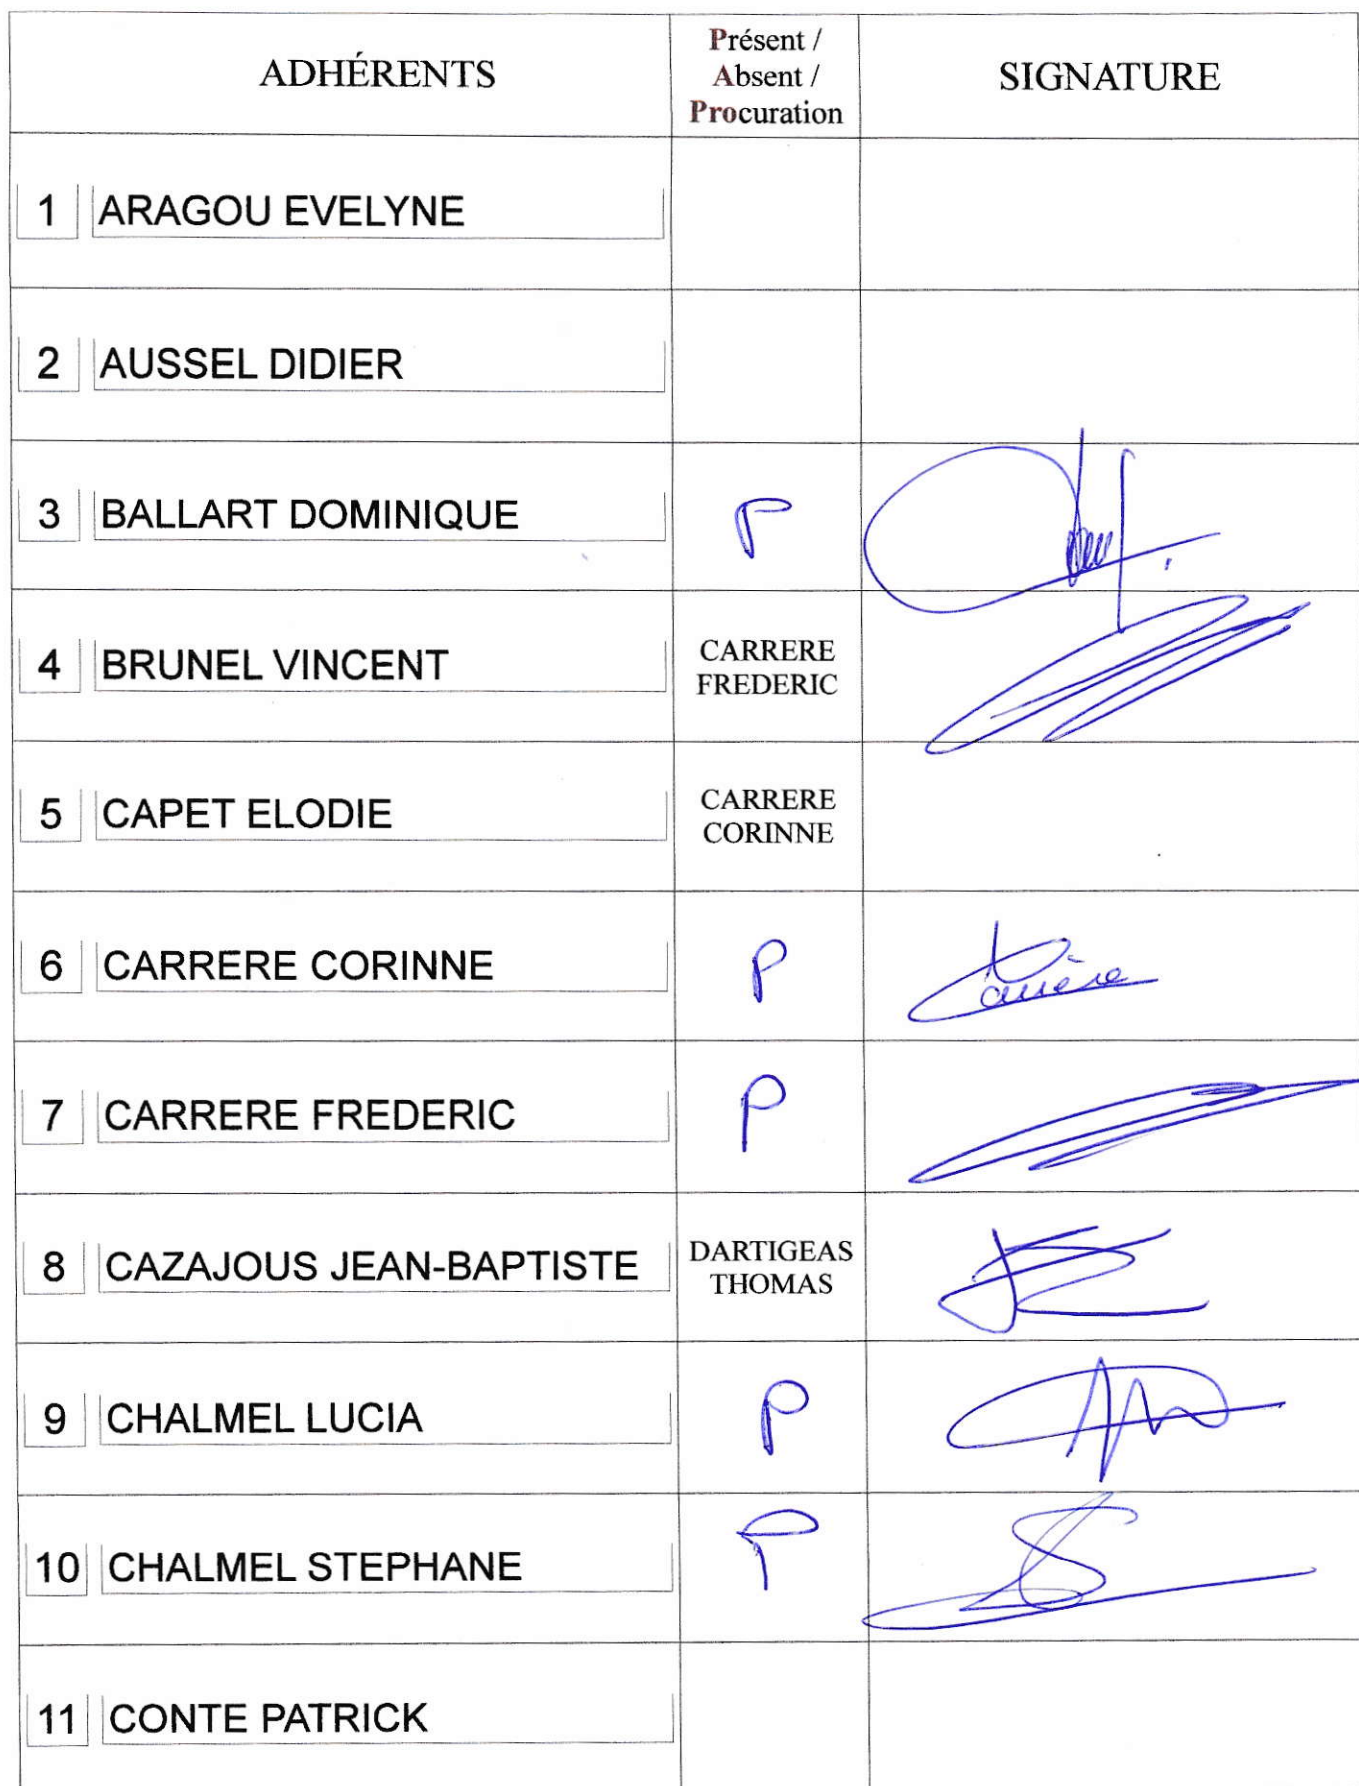 ADHÉRENTS
Présent /
Absent /
Procuration
SIGNATURE
1 ARAGOU EVELYNE
2 AUSSEL DIDIER
3 BALLART DOMINIQUE P
4 BRUNEL VINCENT
CARRERE
FREDERIC
5 CAPET ELODIE
CARRERE
CORINNE
6 CARRERE CORINNE P Carrère
7 CARRERE FREDERIC P
8 CAZAJOUS JEAN-BAPTISTE
DARTIGEAS
THOMAS
9 CHALMEL LUCIA P
10 CHALMEL STEPHANE P
11 CONTE PATRICK